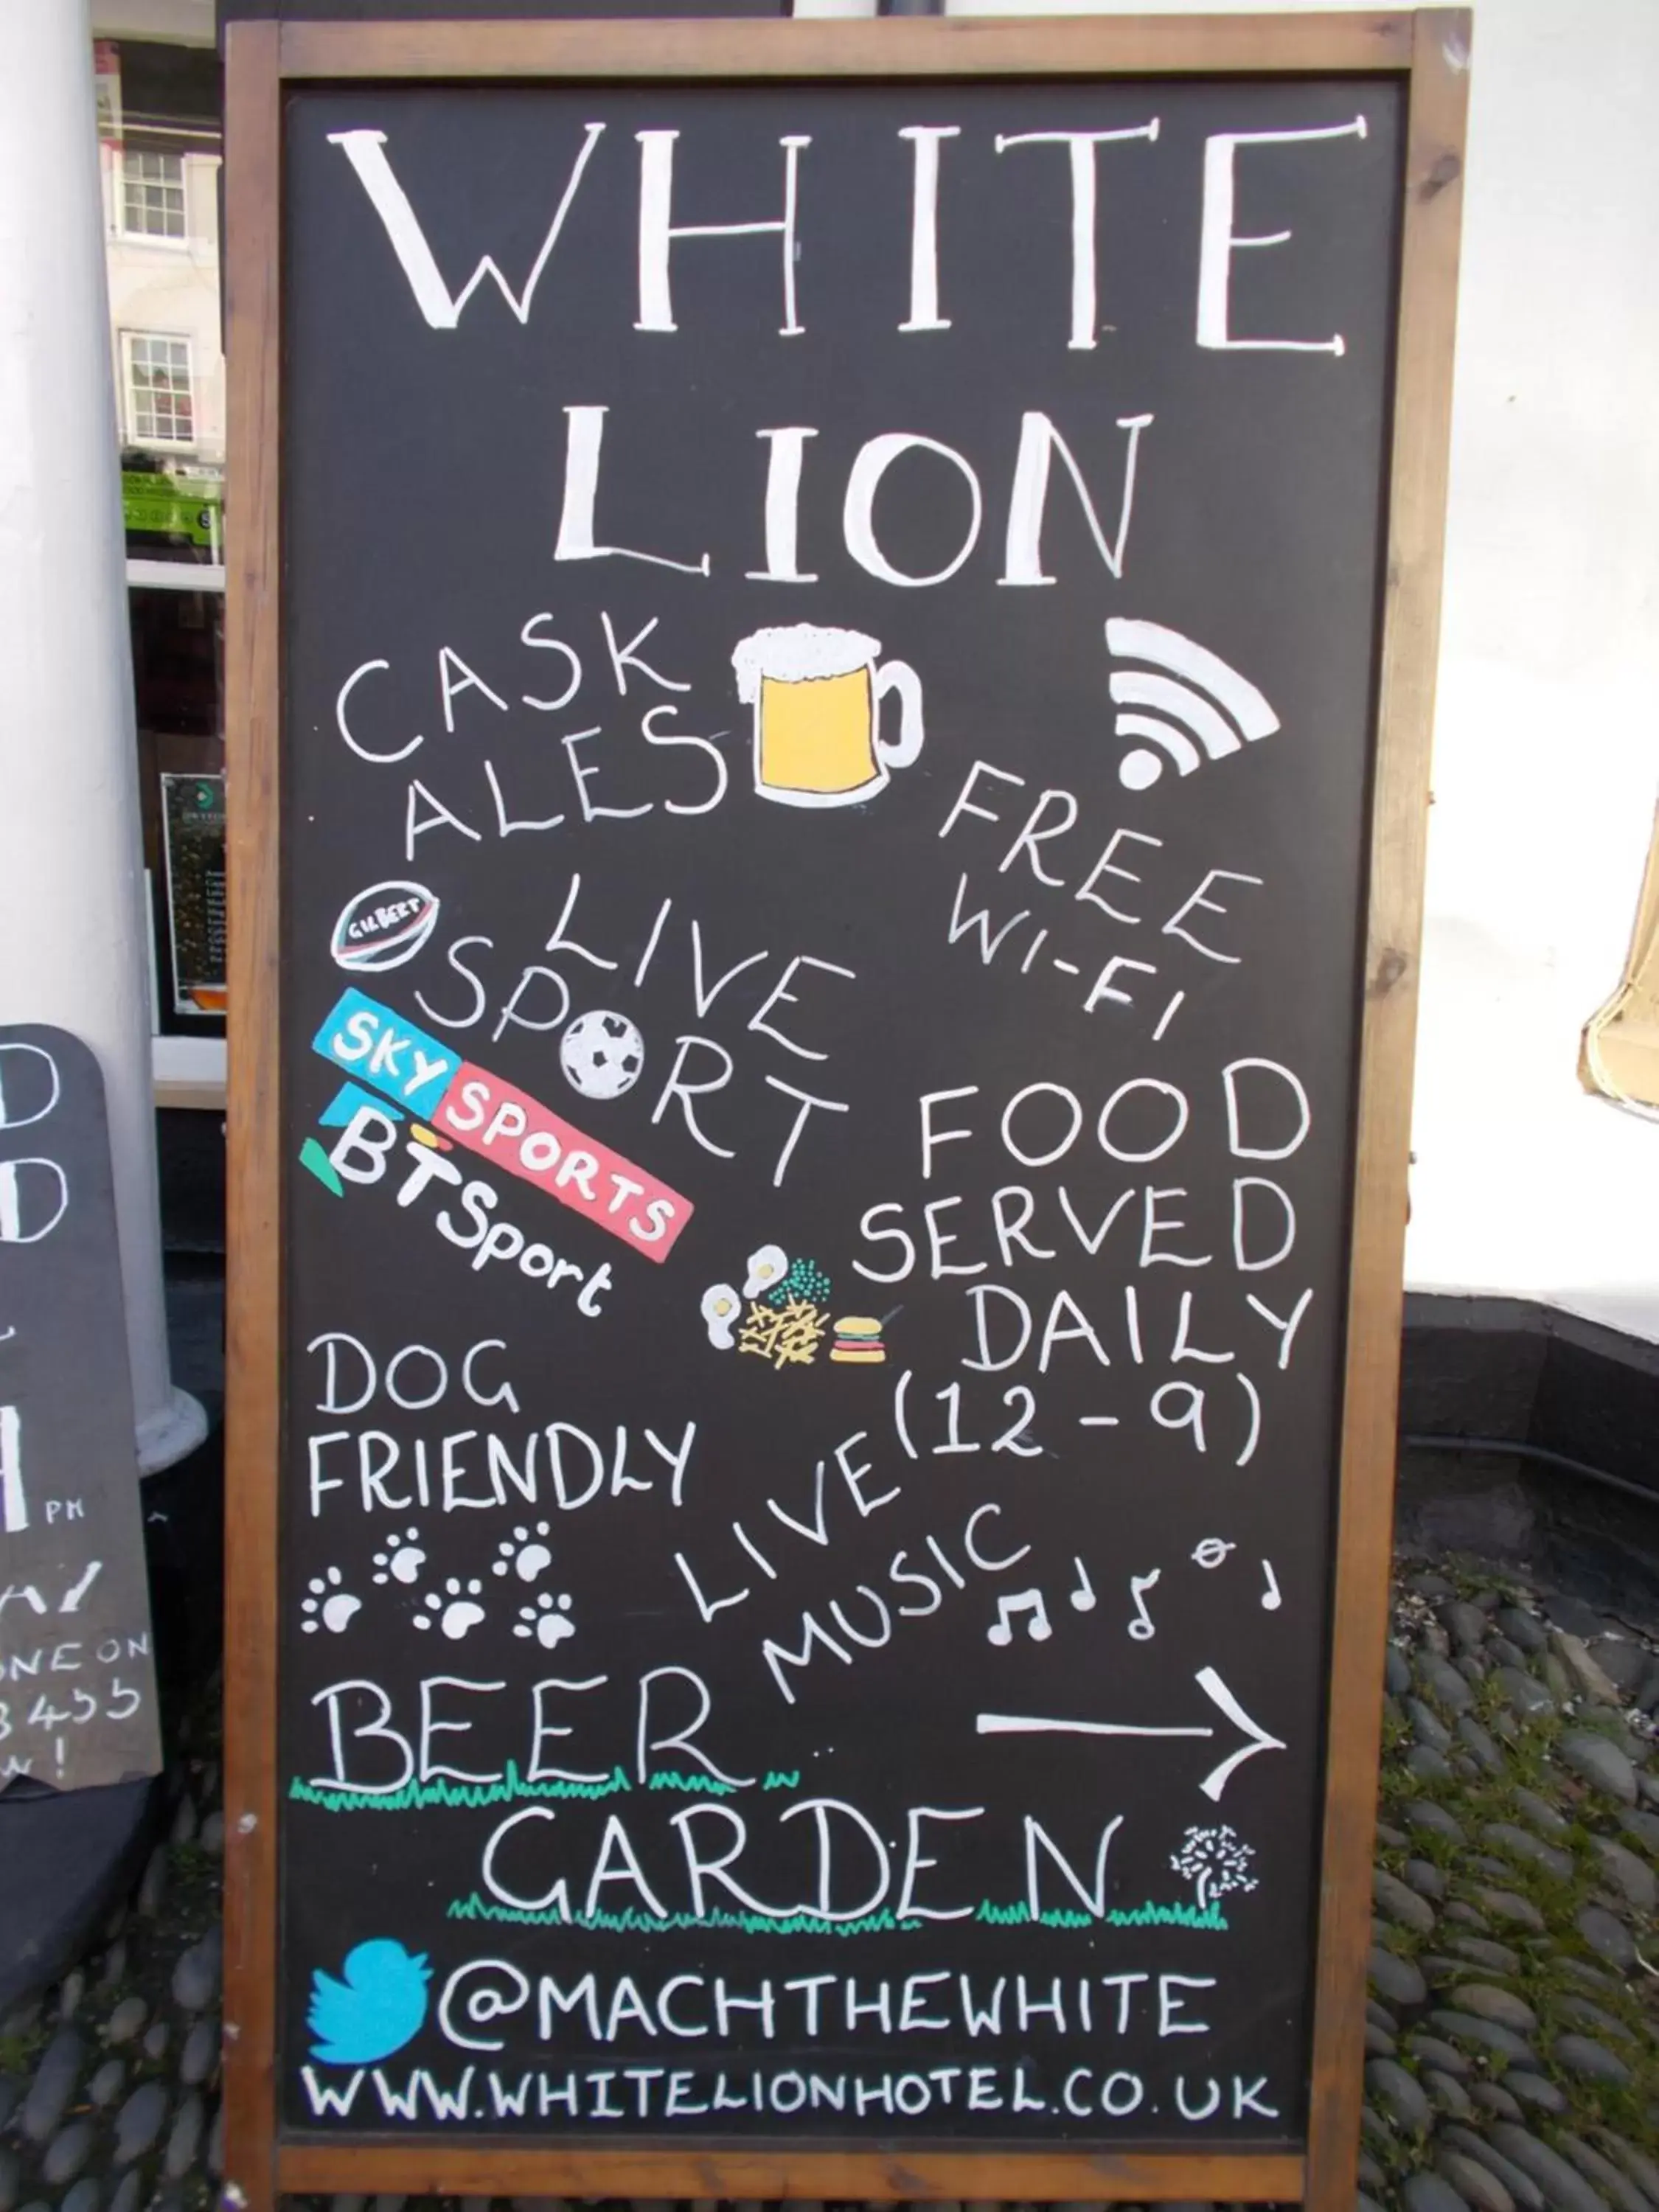 WHITE
LION
CASK
ALES
FREE
WI-FI
GILBERT
LIVE
SPORT
SKY SPORTS
BTSport
FOOD
SERVED
DAILY
(12-9)
DOG
FRIENDLY
LIVE
MUSIC
BEER
GARDEN
@MACHTHEWHITE
WWW.WHITELIONHOTEL.CO.UK
D
D
PM
ONE ON